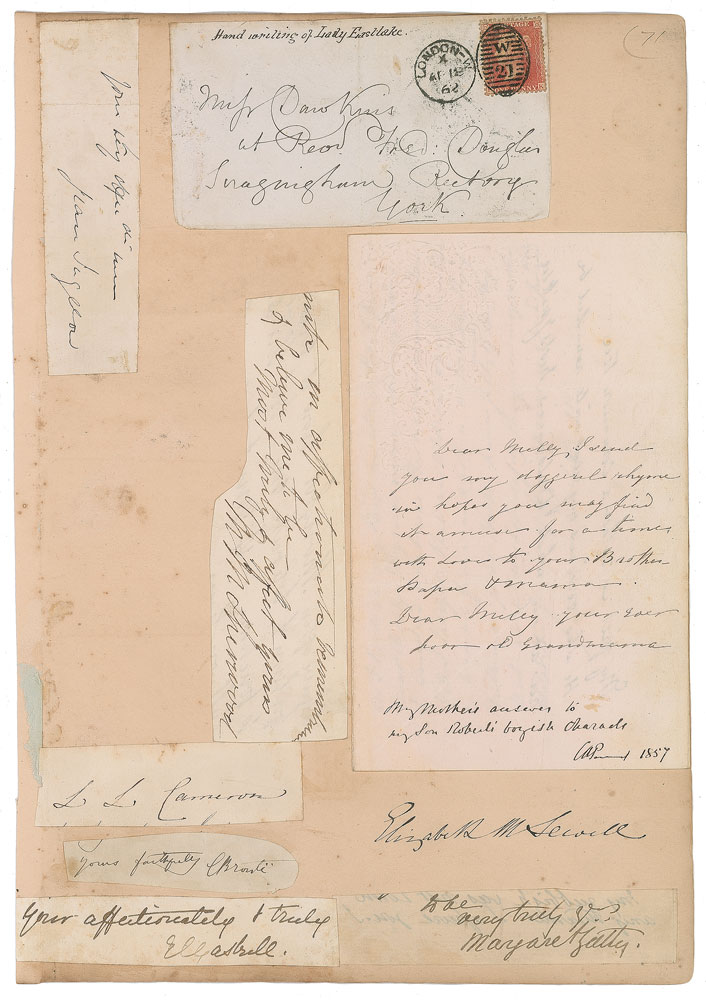 (71
Hand writing of Lady Eastlake.
LONDON-W
X
AP 12
62
W
21
ONE PENNY
Miss Dawkins
at Revd Fred: Douglas
Scrayingham Rectory
York
Jean Ingelow
with an affectionate
& believe me to be
Most truly & affectly yours
M. M. Sherwood
Dear Milly, I send
you my doggerel rhyme
in hopes you may find
it amuse for a time
with Love to your Brother
Papa & Mama.
Dear Milly your ever
poor old Grandmama
My Mother's answer to
my Son Robert's boyish Charade
1857
L L. Cameron
yours faithfully CBrontë
Elizabeth M Sewell
Your affectionately & truly
E C Gaskell.
to be
very truly yrs
Margaret Gatty.